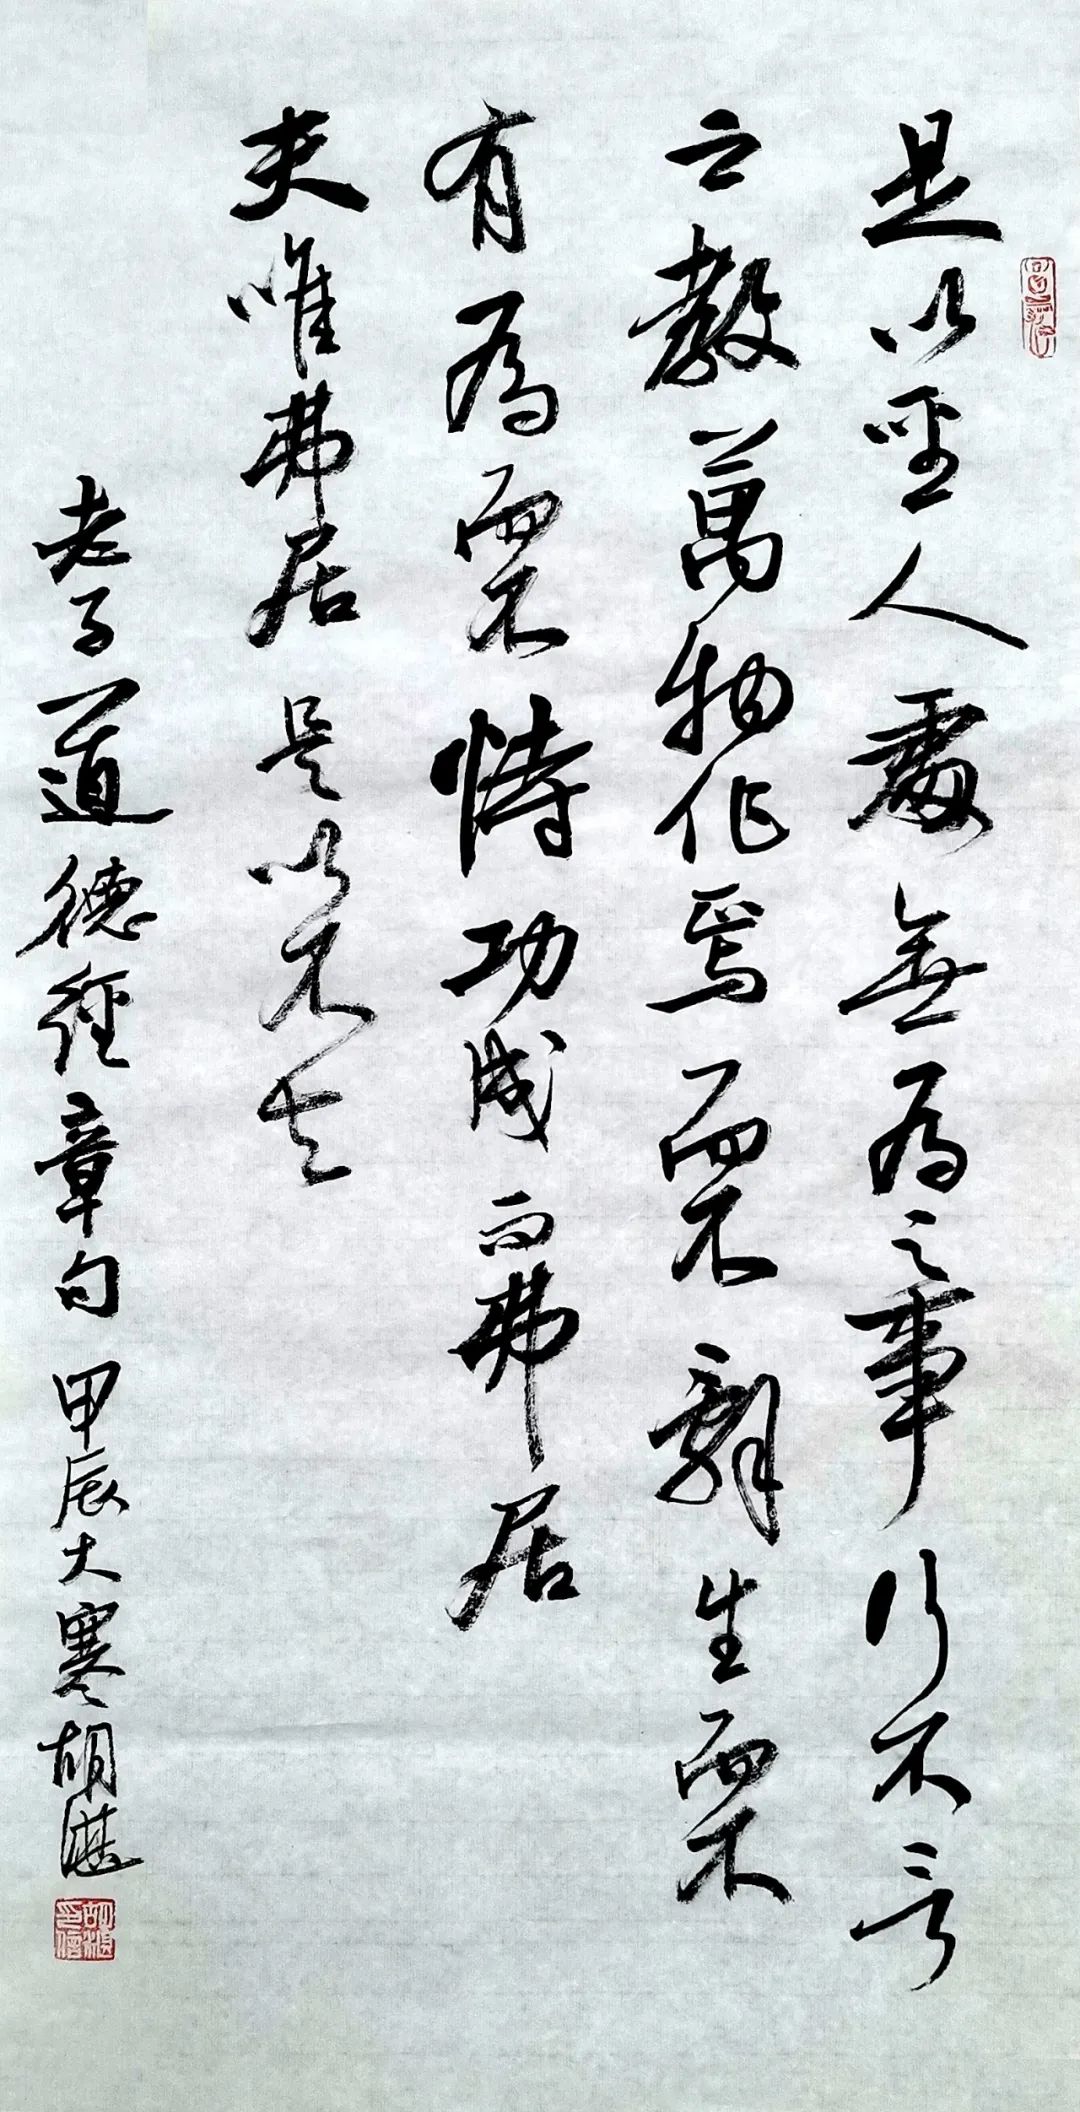 是以聖人處無為之事行不言
之教萬物作焉而不辭生而不
有為而不恃功成而弗居
夫唯弗居是以不去
老子道德經章句甲辰大寒胡湛